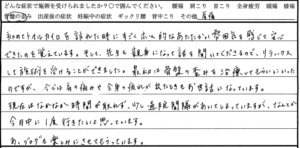 どんな症状で施術を受けられましたか？○で囲んでください。 腰痛 肩こり 首こり 全身疲労 頭痛 膝痛
骨盤の歪み 出産後の症状 妊娠中の症状 ギックリ腰 背中コリ その他
初めて
を訪れた時にすごくホッと
雰囲気を感じて安心
できたのを覚えています。そして、先生も親身になって話を聞いてくださるので、リラックス
して施術を受けることができました。最初は骨盤の歪みを治療してもらいにいった
のですが、今では肩の痛みや全身の疲れが出たときもお世話になっています。
現在はなかなか時間が取れず、少し通院間隔があいてしまっていますが、なんとか
今月中に1度行きたいと思っています。
あ、ブログも楽しみにさせてもらっています。